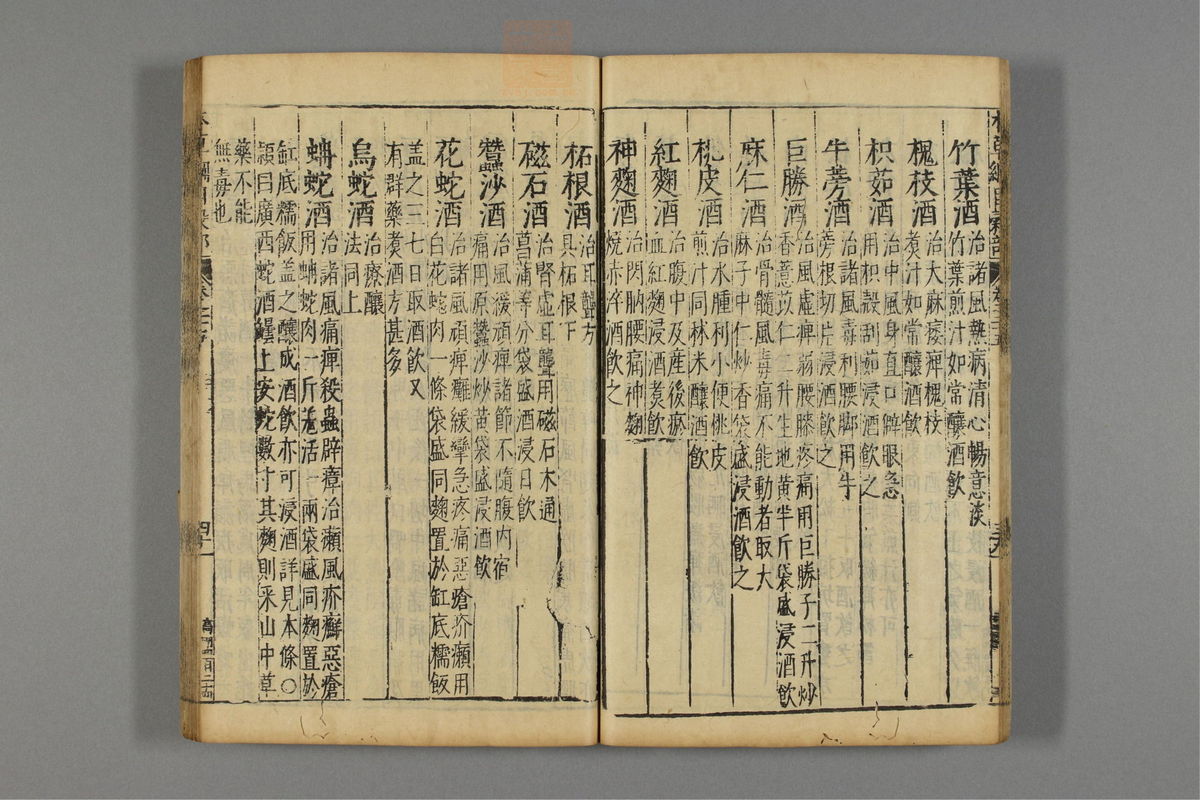 竹葉酒 治諸風熱病清心暢意淡
竹葉煎汁如常釀酒飲
槐枝酒 治大麻痿痺槐枝
煮汁如常釀酒飲
枳茹酒 治中風身直口僻眼急
用枳殼刮茹浸酒飲之
牛蒡酒 治諸風毒利腰脚用牛
蒡根切片浸酒飲之
巨勝酒 治風虛痺弱腰膝疼痛用巨勝子二升炒
香薏苡仁二升生地黃半斤袋盛浸酒飲
麻仁酒 治骨髓風毒痛不能動者取大
麻子中仁炒香袋盛浸酒飲之
桃皮酒 治水腫利小便桃皮
煎汁同秫米釀酒飲
紅麴酒 治腹中及産後瘀
血紅麴浸酒煮飲
神麴酒 治閃肭腰痛神麴
燒赤淬酒飲之
柘根酒 治耳聾方
具柘根下
磁石酒 治腎虛耳聾用磁石木通
菖蒲等分袋盛酒浸日飲
蠶沙酒 治風緩頑痺諸節不隨腹内宿
痛用原蠶沙炒黃袋盛浸酒飲
花蛇酒 治諸風頑痺癱緩攣急疼痛惡瘡疥癩用
白花蛇肉一條袋盛同麴置於缸底糯飯
盖之三七日取酒飲又
有群藥煮酒方甚多
烏蛇酒 治療釀
法同上
蚺蛇酒 治諸風痛痺殺蟲辟瘴治癩風疥癬惡瘡
用蚺蛇肉一斤羌活一兩袋盛同麴置於
缸底糯飯盖之釀成酒飲亦可浸酒詳見本條〇
頴曰廣西蛇酒罎上安蛇數寸其麴則采山中草
藥不能
無毒也